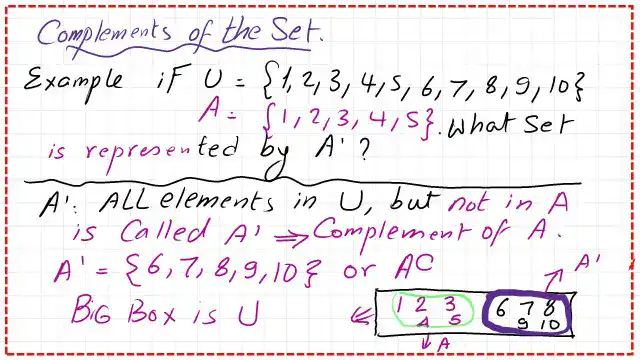 Complements of the Set.
Example if U = {1, 2, 3, 4, 5, 6, 7, 8, 9, 10}
A = {1, 2, 3, 4, 5}. What Set
is represented by A' ?
A': ALL elements in U, but not in A
is Called A' ⇒ Complement of A.
A' = {6, 7, 8, 9, 10} or AC
A'
BIG Box is U
1 2 3 6 7 8
4 5 9 10
A